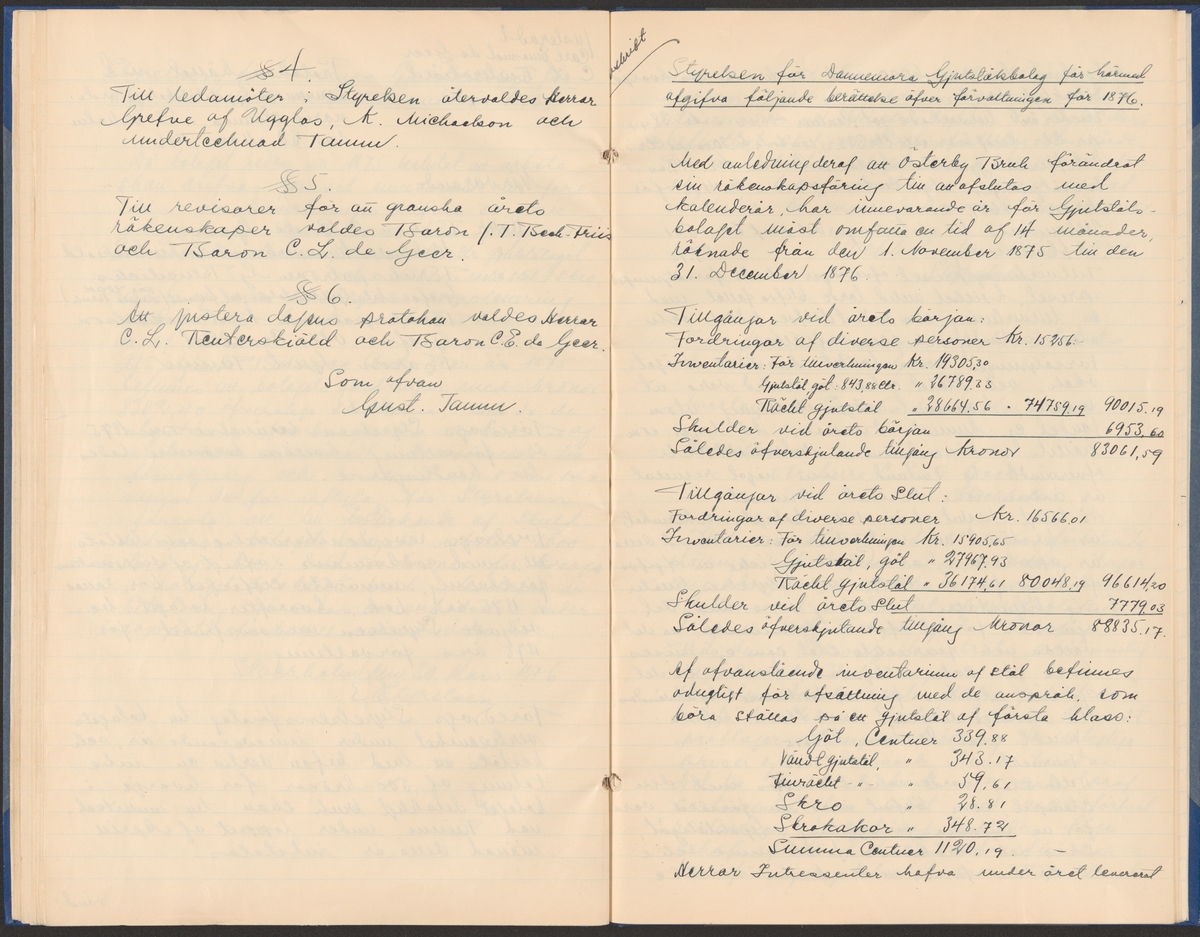 § 4.
Till ledamöter i Styrelsen återvaldes Herrar
Grefve af Ugglas, K. Michaelson och
undertecknad Tamm.
§ 5.
Till revisorer för att granska årets
räkenskaper valdes Baron J. T. Beck-Friis
och Baron C. L. de Geer.
§ 6.
Att justera dagens protokoll valdes Herrar
C. L. Reuterskiöld och Baron C. E. de Geer.
Som ofvan
Gust. Tamm.
Styrelsen för Dannemora Gjutstålsbolag får härmed
afgifva följande berättelse öfver förvaltningen för 1876.
Med anledning deraf att Österby Bruk förändrat
sin räkenskapsföring till att afslutas med
kalenderår, har innevarande år för Gjutståls-
bolaget måst omfatta en tid af 14 månader,
räknade från den 1. November 1875 till den
31. December 1876.
Tillgångar vid årets början:
Fordringar af diverse personer Kr. 15256.-
Inventarier: För tillverkningen Kr. 19305,30
Gjutstål göt: 843,88 Ctr. " 26789,33
Räckt gjutstål " 28664.56 " 74759,19 90015,19
Skulder vid årets början 6953,60
Således öfverskjutande tillgång Kronor 83061,59
Tillgångar vid årets Slut:
Fordringar af diverse personer Kr. 16566,01
Inventarier: För tillverkningen Kr. 15905,65
Gjutstål, göt " 27967,93
Räckt gjutstål " 36174,61 80048,19 96614,20
Skulder vid årets Slut 7779,03
Således öfverskjutande tillgång Kronor 88835,17.
Af ofvanstående inventarium af stål befinnes
odugligt för afsättning med de anspråk, som
böra ställas på ett gjutstål af första klass:
Göt, Centner 339,88
Vändt gjutstål, " 343,17
Finräckt -"- " 59,61
Skro " 28.81
Skrokakor " 348.72
Summa Centner 1120,19. –
Herrar Intressenter hafva under året levererat